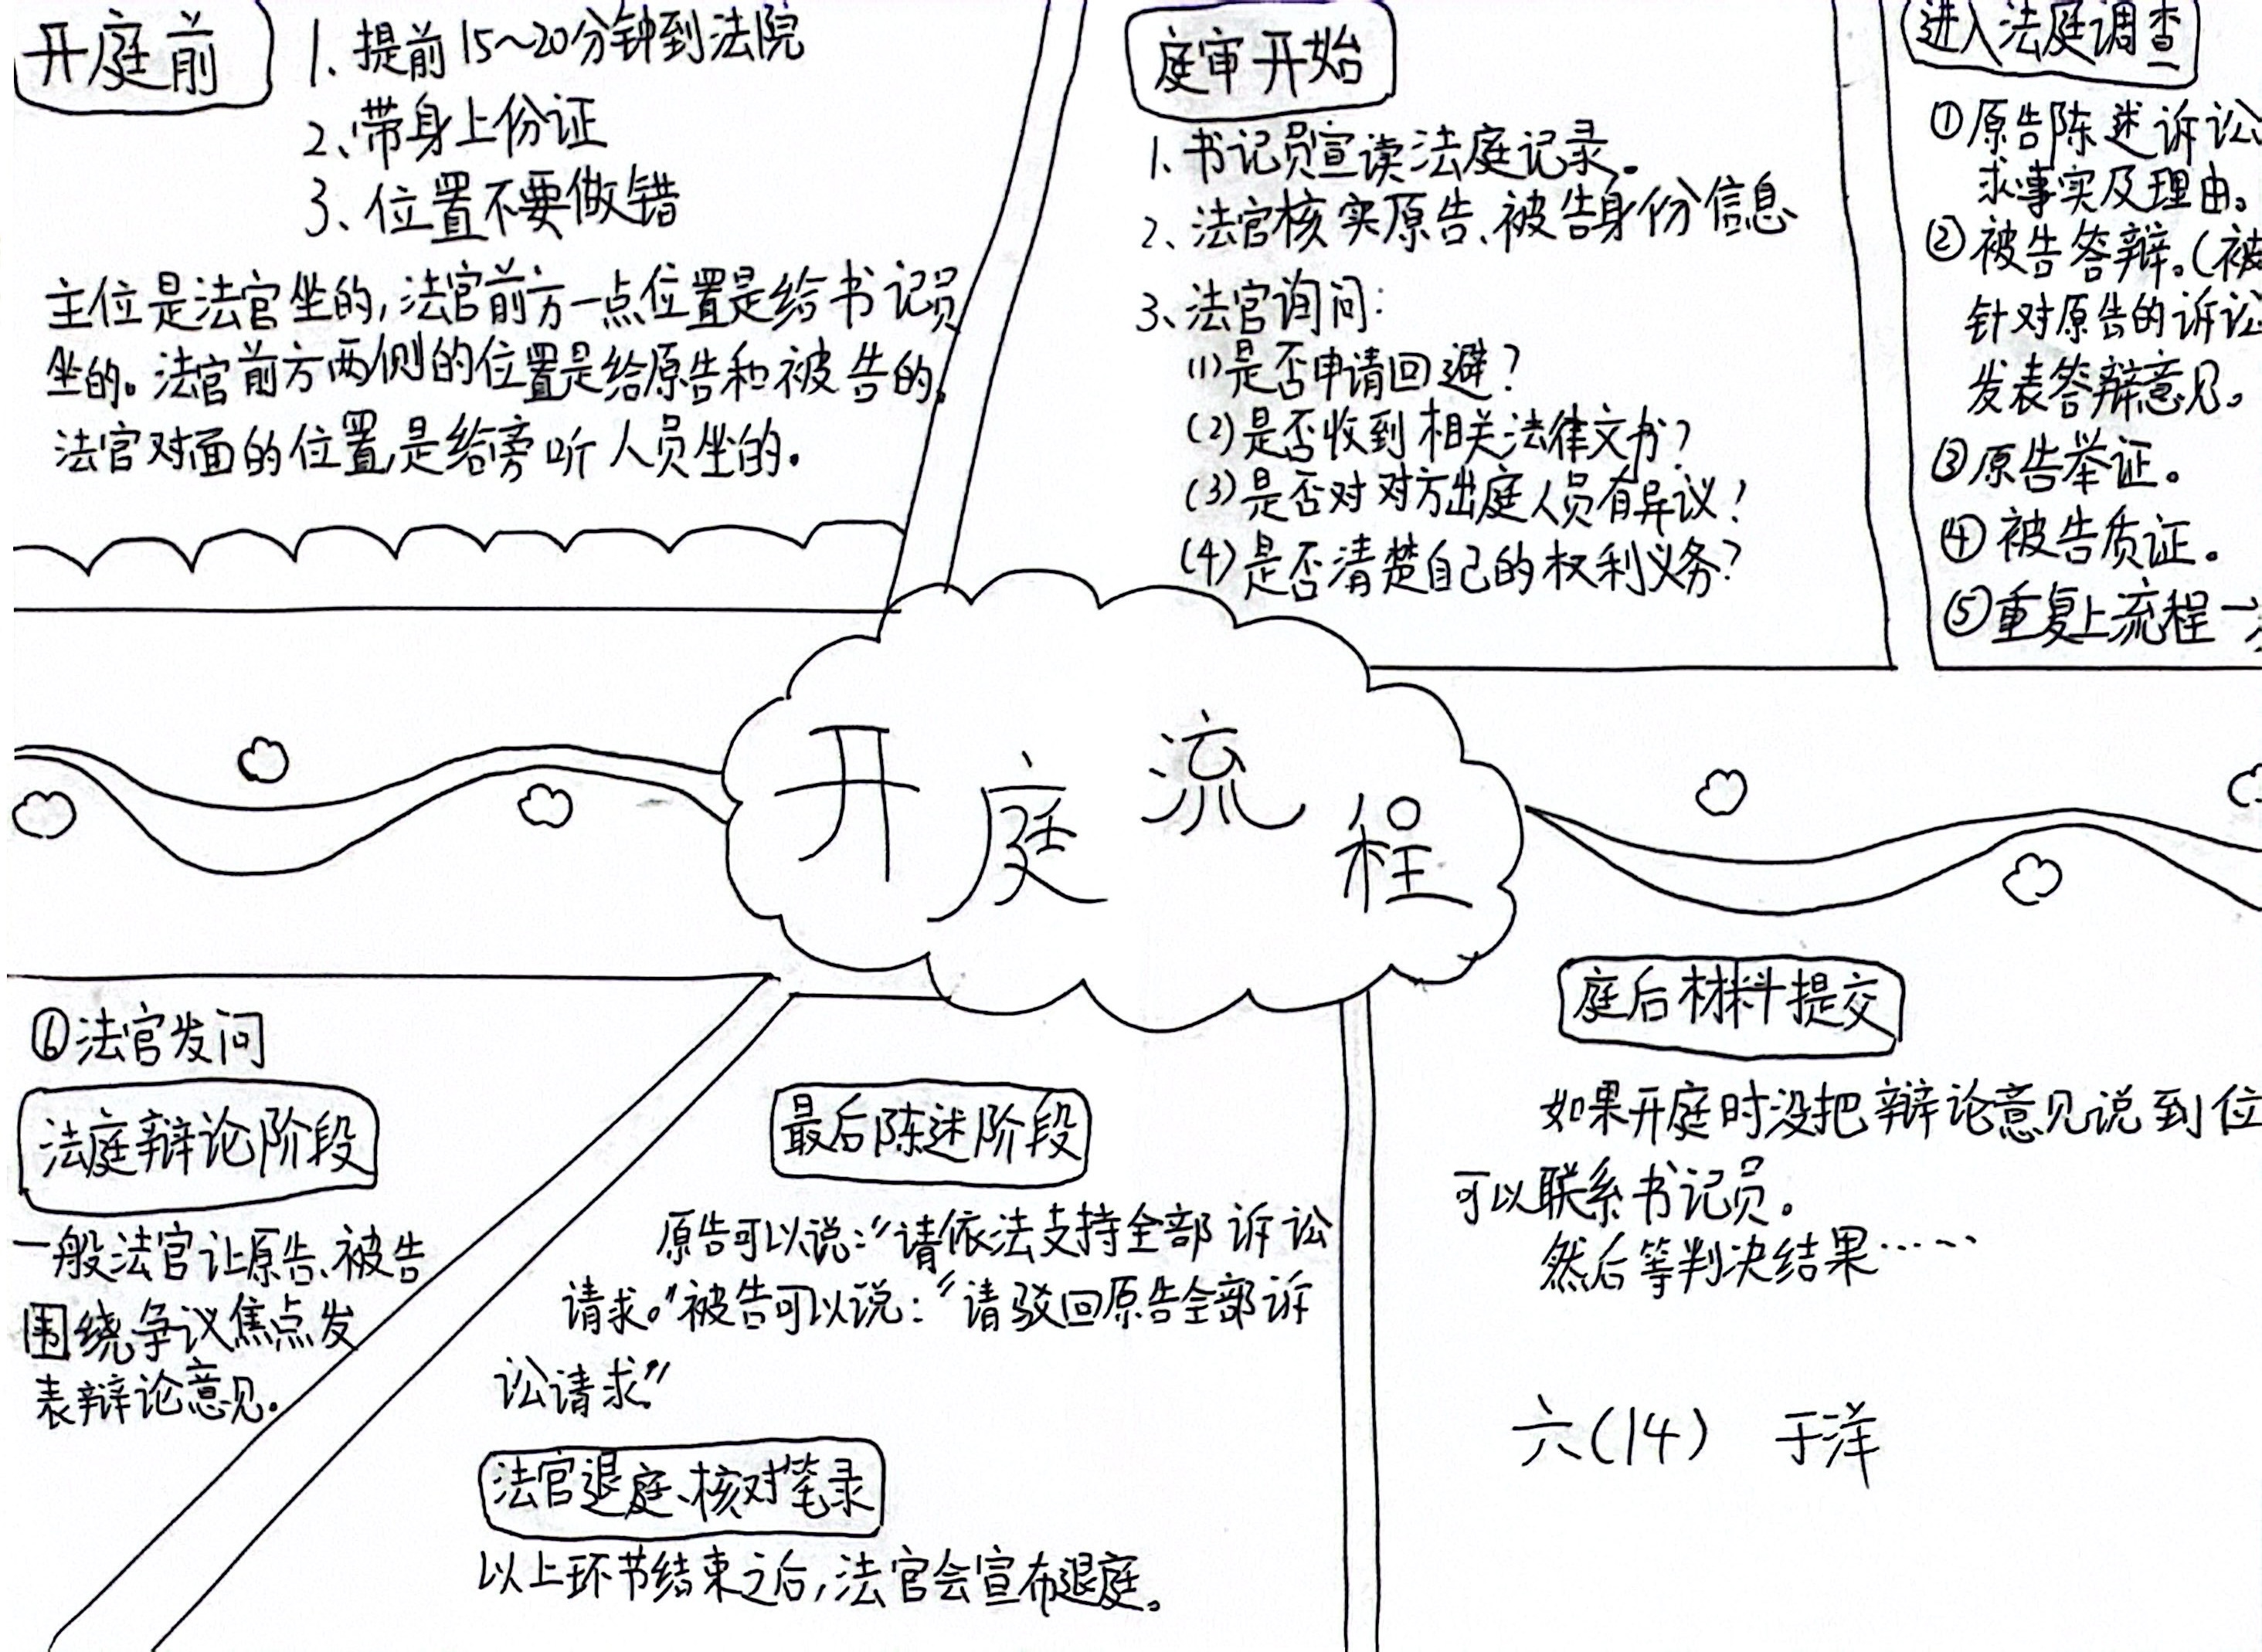 开庭前
1、提前15~20分钟到法院
2、带身上份证
3、位置不要做错
主位是法官坐的,法官前方一点位置是给书记员
坐的。法官前方两侧的位置是给原告和被告的。
法官对面的位置,是给旁听人员坐的。
庭审开始
1、书记员宣读法庭记录。
2、法官核实原告、被告身份信息
3、法官询问:
(1)是否申请回避?
(2)是否收到相关法律文书?
(3)是否对对方出庭人员有异议?
(4)是否清楚自己的权利义务?
进入法庭调查
①原告陈述诉讼
求事实及理由。
②被告答辩。(被
针对原告的诉讼
发表答辩意见。
③原告举证。
④被告质证。
⑤重复上流程一
开庭流程
⑥法官发问
法庭辩论阶段
一般法官让原告、被告
围绕争议焦点发
表辩论意见。
最后陈述阶段
原告可以说:“请依法支持全部诉讼
请求。”被告可以说:“请驳回原告全部诉
讼请求”
法官退庭、核对笔录
以上环节结束之后,法官会宣布退庭。
庭后材料提交
如果开庭时没把辩论意见说到位
可以联系书记员。
然后等判决结果……
六(14) 于洋